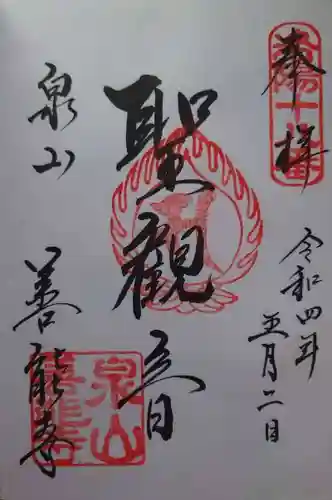 奉拝
令和四年
五月二日
聖観音
泉山
善能寺
泉山